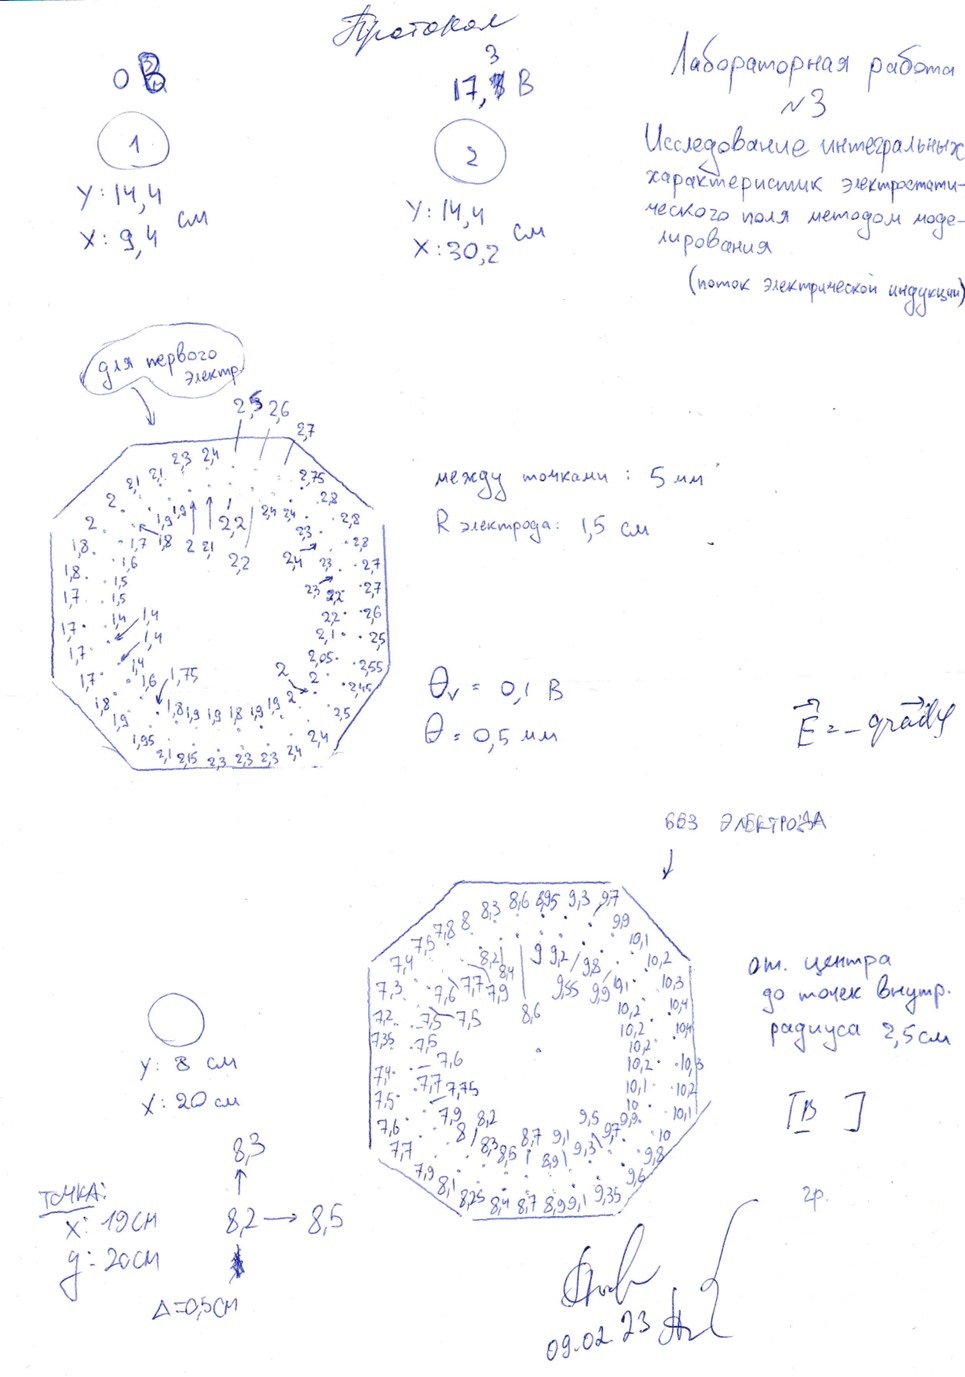 Протокол
0 В
17,3 В
Лабораторная работа
№3
Исследование интегральных
характеристик электростати-
ческого поля методом моде-
лирования
(поток электрической индукции)
1
2
y: 14,4
x: 9,4
см
y: 14,4
x: 30,2
см
для первого
электр.
2,5 2,6
2,7
2,1 2,1 2,3 2,4
2,75
2 2,8
2 1,9 1,9 2,2 2,4 2,4 2,8
1,8 1,7 1,8 2 2,1 2,3 2,8
1,8 1,6 2,2 2,4 2,3 2,7
1,7 1,5 2,3 2,2 2,7
1,5
1,7 1,4 1,4 2,2 2,6
1,7 1,4 2,1 2,5
1,7 1,4 2,05 2,55
1,6 1,75 2 2 2,45
1,8 1,9 1,8 1,9 1,9 1,8 1,9 1,9 2 2,5
1,95 2,4
2,1 2,15 2,3 2,3 2,3 2,4
между точками : 5 мм
R электрода: 1,5 см
θv = 0,1 В
θ = 0,5 мм
E = – gradφ
без электрода
8,3 8,6 8,95 9,3 9,7
7,5 7,8 8 9,9
7,4 8,2 8,4 9 9,2 9,8 10,1 10,2
7,3 7,6 7,7 7,9 9,55 9,9 10,1 10,3
7,2 7,5 7,5 8,6 10,2 10,4
7,35 7,5 10,2 10,4
7,6 10,2
7,4 7,7 7,75 10,2 10,3
7,5 10,1 10,2
7,6 7,9 8,2 9,5 9,9 10 10,1
7,7 8 8,3 8,5 8,7 8,9 9,1 9,3 9,7 10
7,9 9,8
8,1 8,25 8,4 8,7 8,9 9,1 9,35 9,6
от. центра
до точек внутр.
радиуса 2,5 см
[В ]
y: 8 см
x: 20 см
8,3
точка:
x: 19 см
8,2 → 8,5
y: 20 см
Δ=0,5 см
гр.
09.02.23